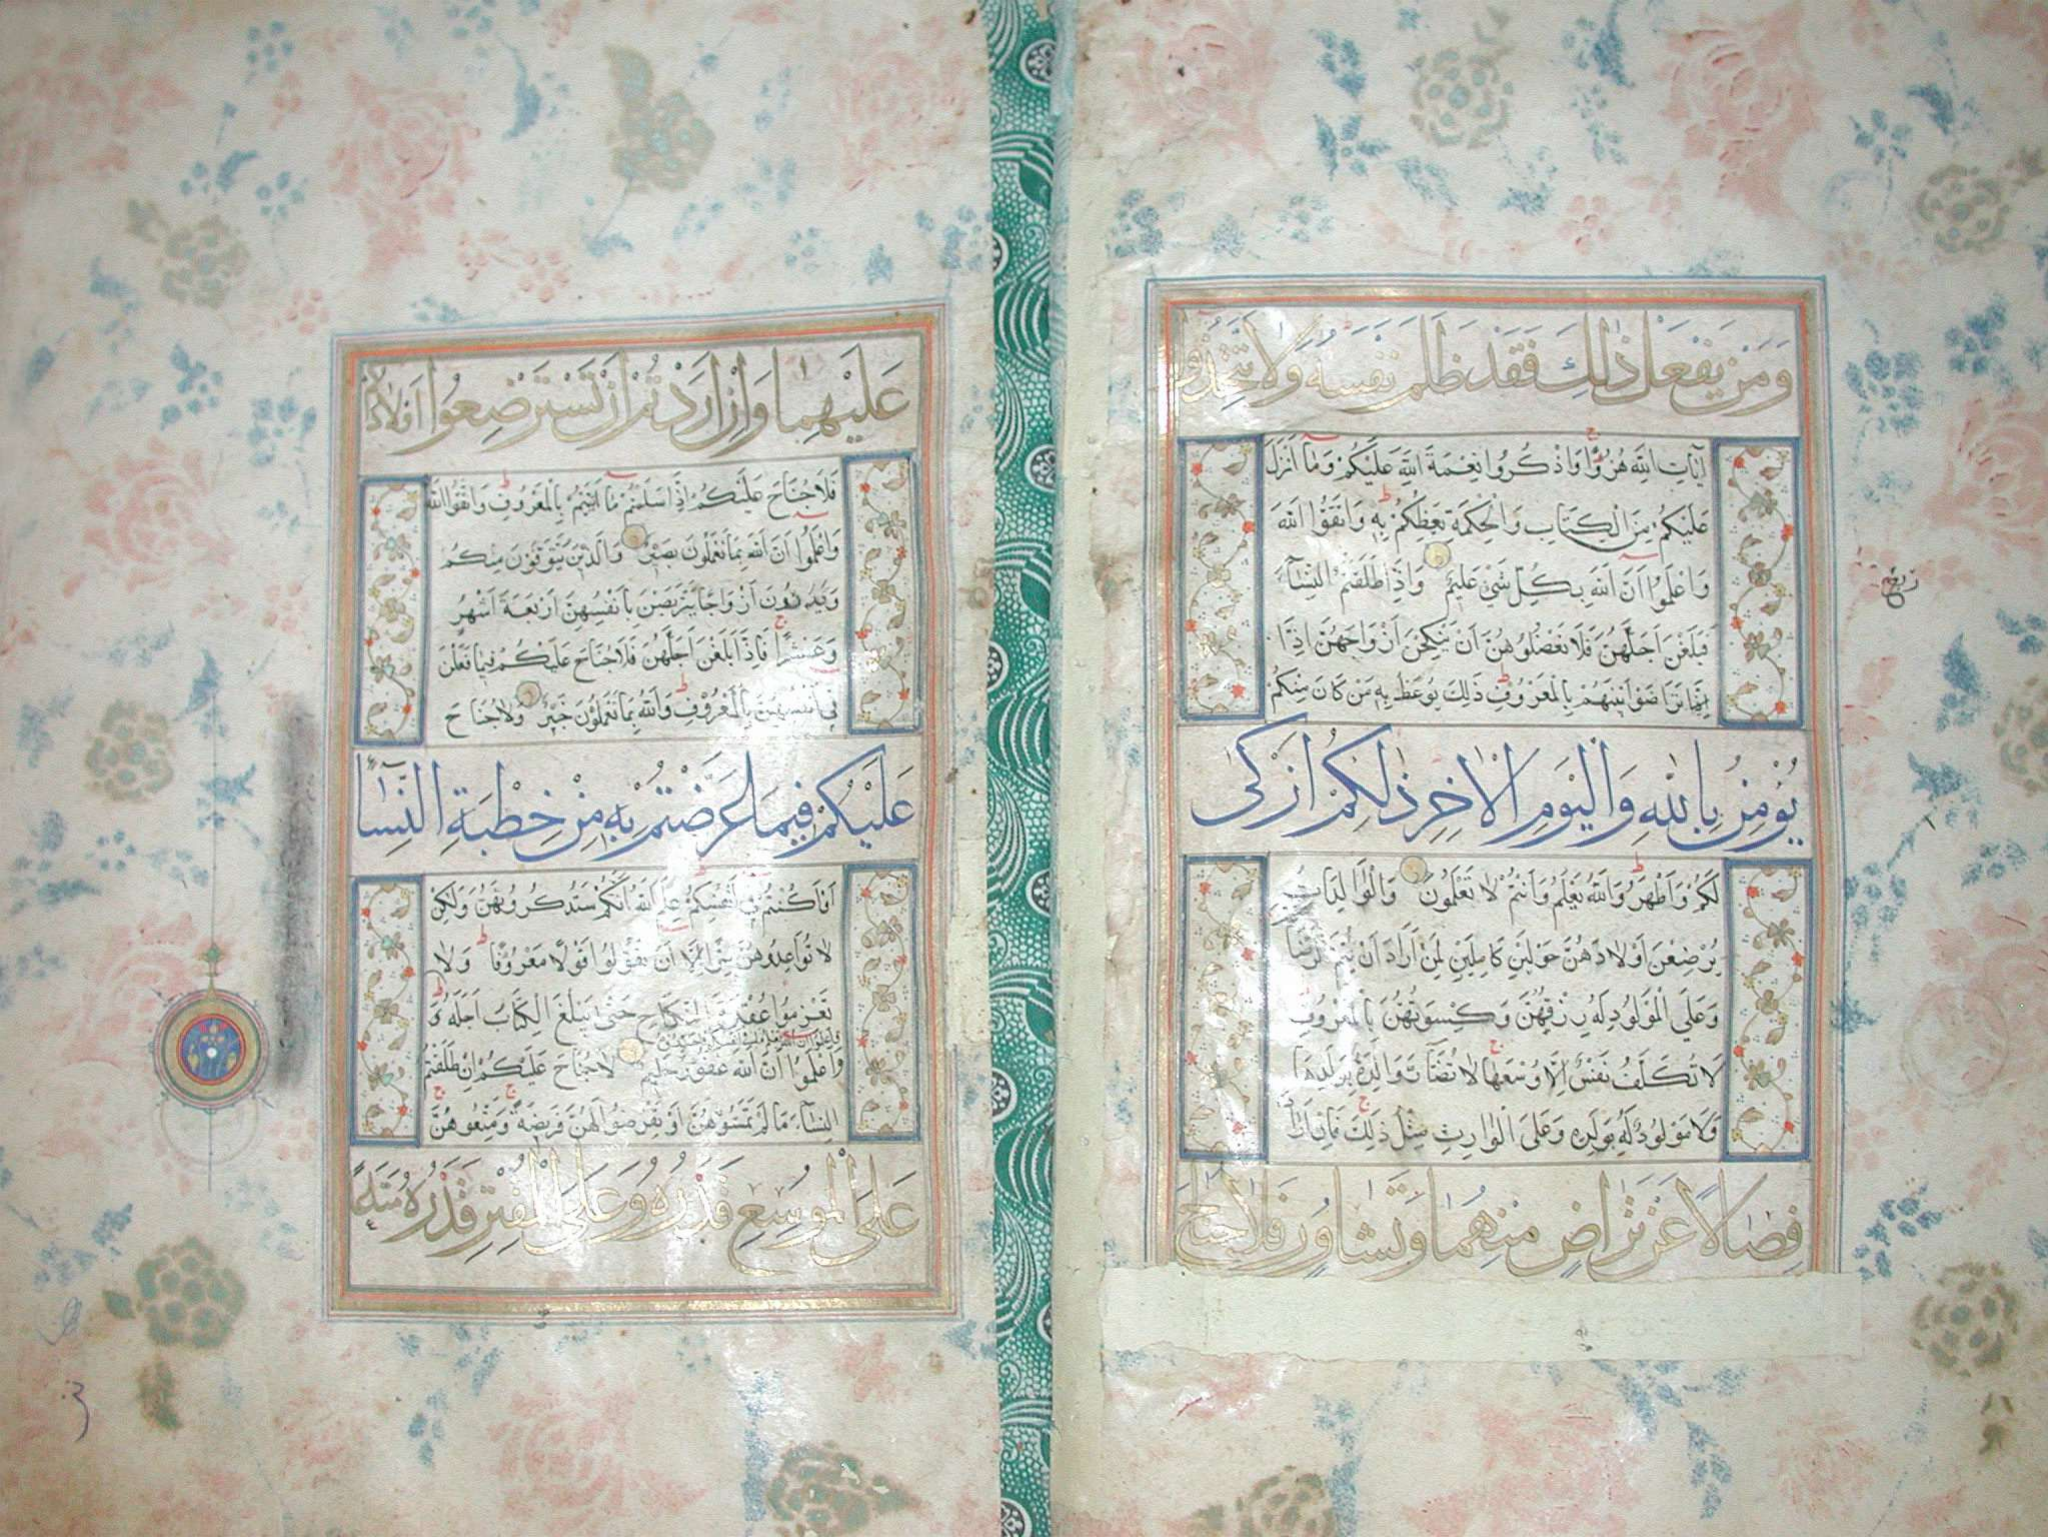 وَمَنْ يَفْعَلْ ذٰلِكَ فَقَدْ ظَلَمَ نَفْسَهُ وَلَا تَتَّخِذُوا
اٰيَاتِ اللهِ هُزُوًا وَاذْكُرُوا نِعْمَةَ اللهِ عَلَيْكُمْ وَمَا اَنْزَلَ
عَلَيْكُمْ مِنَ الْكِتَابِ وَالْحِكْمَةِ يَعِظُكُمْ بِهِ وَاتَّقُوا اللهَ
وَاعْلَمُوا اَنَّ اللهَ بِكُلِّ شَيْءٍ عَلِيمٌ وَاِذَا طَلَّقْتُمُ النِّسَاءَ
فَبَلَغْنَ اَجَلَهُنَّ فَلَا تَعْضُلُوهُنَّ اَنْ يَنْكِحْنَ اَزْوَاجَهُنَّ اِذَا
تَرَاضَوْا بَيْنَهُمْ بِالْمَعْرُوفِ ذٰلِكَ يُوعَظُ بِهِ مَنْ كَانَ مِنْكُمْ
يُؤْمِنُ بِاللهِ وَالْيَوْمِ الْاٰخِرِ ذٰلِكُمْ اَزْكٰى
لَكُمْ وَاَطْهَرُ وَاللهُ يَعْلَمُ وَاَنْتُمْ لَا تَعْلَمُونَ وَالْوَالِدَاتُ
يُرْضِعْنَ اَوْلَادَهُنَّ حَوْلَيْنِ كَامِلَيْنِ لِمَنْ اَرَادَ اَنْ يُتِمَّ الرَّضَاعَةَ
وَعَلَى الْمَوْلُودِ لَهُ رِزْقُهُنَّ وَكِسْوَتُهُنَّ بِالْمَعْرُوفِ
لَا تُكَلَّفُ نَفْسٌ اِلَّا وُسْعَهَا لَا تُضَارَّ وَالِدَةٌ بِوَلَدِهَا
وَلَا مَوْلُودٌ لَهُ بِوَلَدِهِ وَعَلَى الْوَارِثِ مِثْلُ ذٰلِكَ فَاِنْ اَرَادَا
فِصَالًا عَنْ تَرَاضٍ مِنْهُمَا وَتَشَاوُرٍ فَلَا جُنَاحَ
ربع
عَلَيْهِمَا وَاِنْ اَرَدْتُمْ اَنْ تَسْتَرْضِعُوا اَوْلَادَكُمْ
فَلَا جُنَاحَ عَلَيْكُمْ اِذَا سَلَّمْتُمْ مَا اٰتَيْتُمْ بِالْمَعْرُوفِ وَاتَّقُوا اللهَ
وَاعْلَمُوا اَنَّ اللهَ بِمَا تَعْمَلُونَ بَصِيرٌ وَالَّذِينَ يُتَوَفَّوْنَ مِنْكُمْ
وَيَذَرُونَ اَزْوَاجًا يَتَرَبَّصْنَ بِاَنْفُسِهِنَّ اَرْبَعَةَ اَشْهُرٍ
وَعَشْرًا فَاِذَا بَلَغْنَ اَجَلَهُنَّ فَلَا جُنَاحَ عَلَيْكُمْ فِيمَا فَعَلْنَ
فِي اَنْفُسِهِنَّ بِالْمَعْرُوفِ وَاللهُ بِمَا تَعْمَلُونَ خَبِيرٌ وَلَا جُنَاحَ
عَلَيْكُمْ فِيمَا عَرَّضْتُمْ بِهِ مِنْ خِطْبَةِ النِّسَاءِ
اَوْ اَكْنَنْتُمْ فِي اَنْفُسِكُمْ عَلِمَ اللهُ اَنَّكُمْ سَتَذْكُرُونَهُنَّ وَلٰكِنْ
لَا تُوَاعِدُوهُنَّ سِرًّا اِلَّا اَنْ تَقُولُوا قَوْلًا مَعْرُوفًا وَلَا
تَعْزِمُوا عُقْدَةَ النِّكَاحِ حَتّٰى يَبْلُغَ الْكِتَابُ اَجَلَهُ وَ
واعلموا ان الله يعلم ما في انفسكم فاحذروه
وَاعْلَمُوا اَنَّ اللهَ غَفُورٌ حَلِيمٌ لَا جُنَاحَ عَلَيْكُمْ اِنْ طَلَّقْتُمُ
النِّسَاءَ مَا لَمْ تَمَسُّوهُنَّ اَوْ تَفْرِضُوا لَهُنَّ فَرِيضَةً وَمَتِّعُوهُنَّ
عَلَى الْمُوسِعِ قَدَرُهُ وَعَلَى الْمُقْتِرِ قَدَرُهُ مَتَاعًا